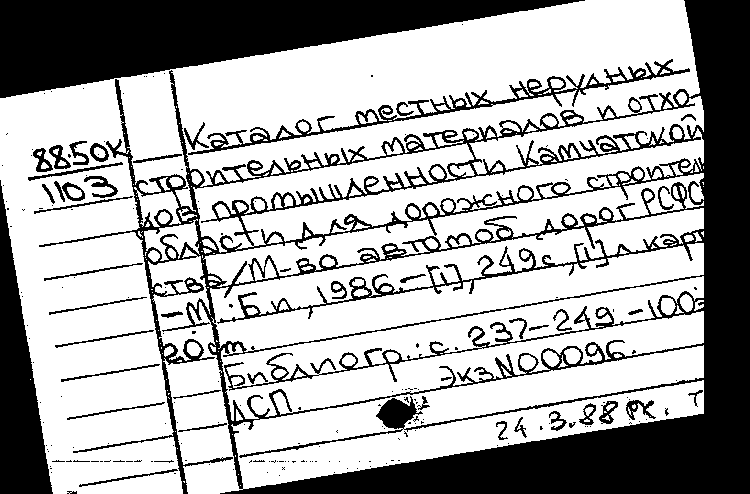 88.50К
1103
Каталог местных нерудных
строительных материалов и отхо-
дов промышленности Камчатской
области для дорожного строитель
ства/М-во автомоб. дорог РСФС
-М.:Б.и., 1986.-[1], 249с,[1] л карт
20см.
Библиогр.: с. 237-249.-100э
ДСП. Экз.N00096.
24.3.88 РК.